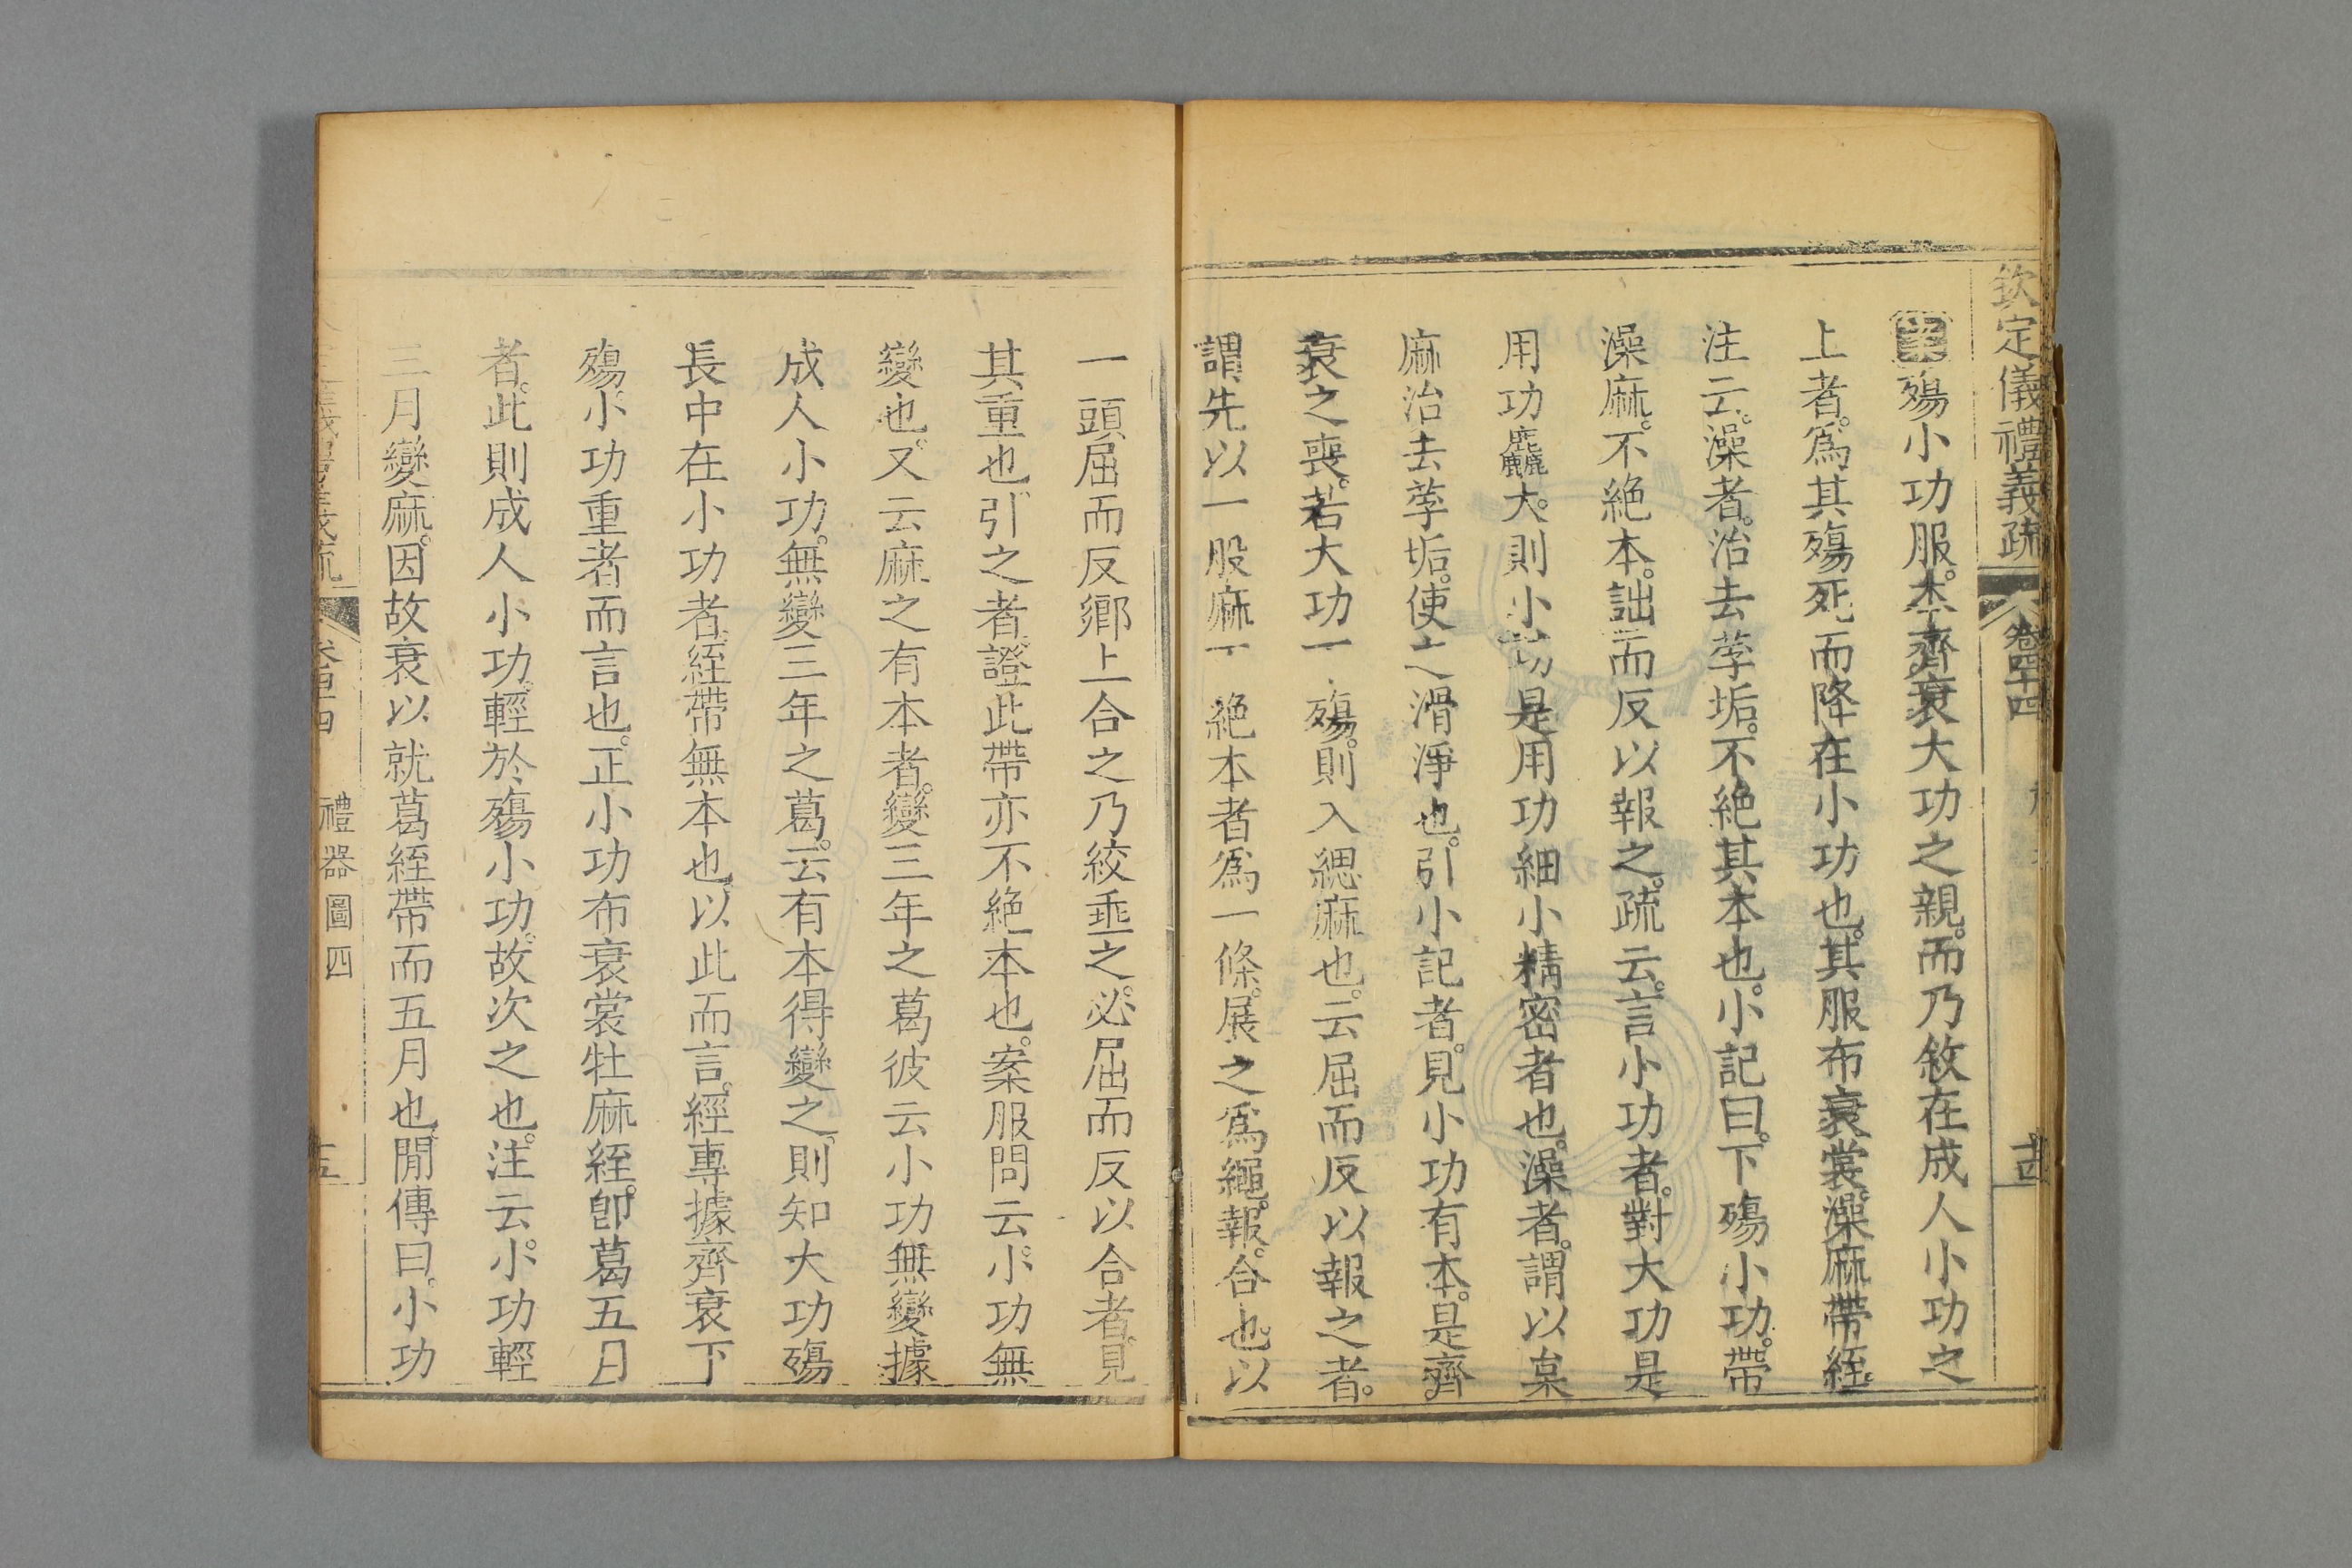 欽定儀禮義疏 卷四十四
殤小功服。本齊衰大功之親。而乃敘在成人小功之
上者。爲其殤死而降在小功也。其服布衰裳。澡麻帶絰。
注云。澡者。治去莩垢。不絶其本也。小記曰。下殤小功。帶
澡麻。不絶本。詘而反以報之。疏云。言小功者。對大功是
用功麤大。則小功是用功細小精密者也。澡者。謂以枲
麻治去莩垢。使之滑淨也。引小記者。見小功有本。是齊
衰之喪。若大功一殤。則入緦麻也。云屈而反以報之者。
謂先以一股麻不絶本者爲一條。展之爲繩。報。合也。以
一頭屈而反鄉上合之乃絞垂之。必屈而反以合者。見
其重也。引之者。證此帶亦不絶本也。案服問云。小功無
變也。又云麻之有本者。變三年之葛彼云小功無變據
成人小功。無變三年之葛。云有本得變之。則知大功殤
長中在小功者。絰帶無本也。以此而言。經專據齊衰下
殤。小功重者而言也。正小功布衰裳牡麻絰。卽葛五月
者。此則成人小功。輕於殤小功。故次之也。注云。小功輕
三月變麻。因故衰以就葛絰帶而五月也。閒傳曰。小功
禮器圖四